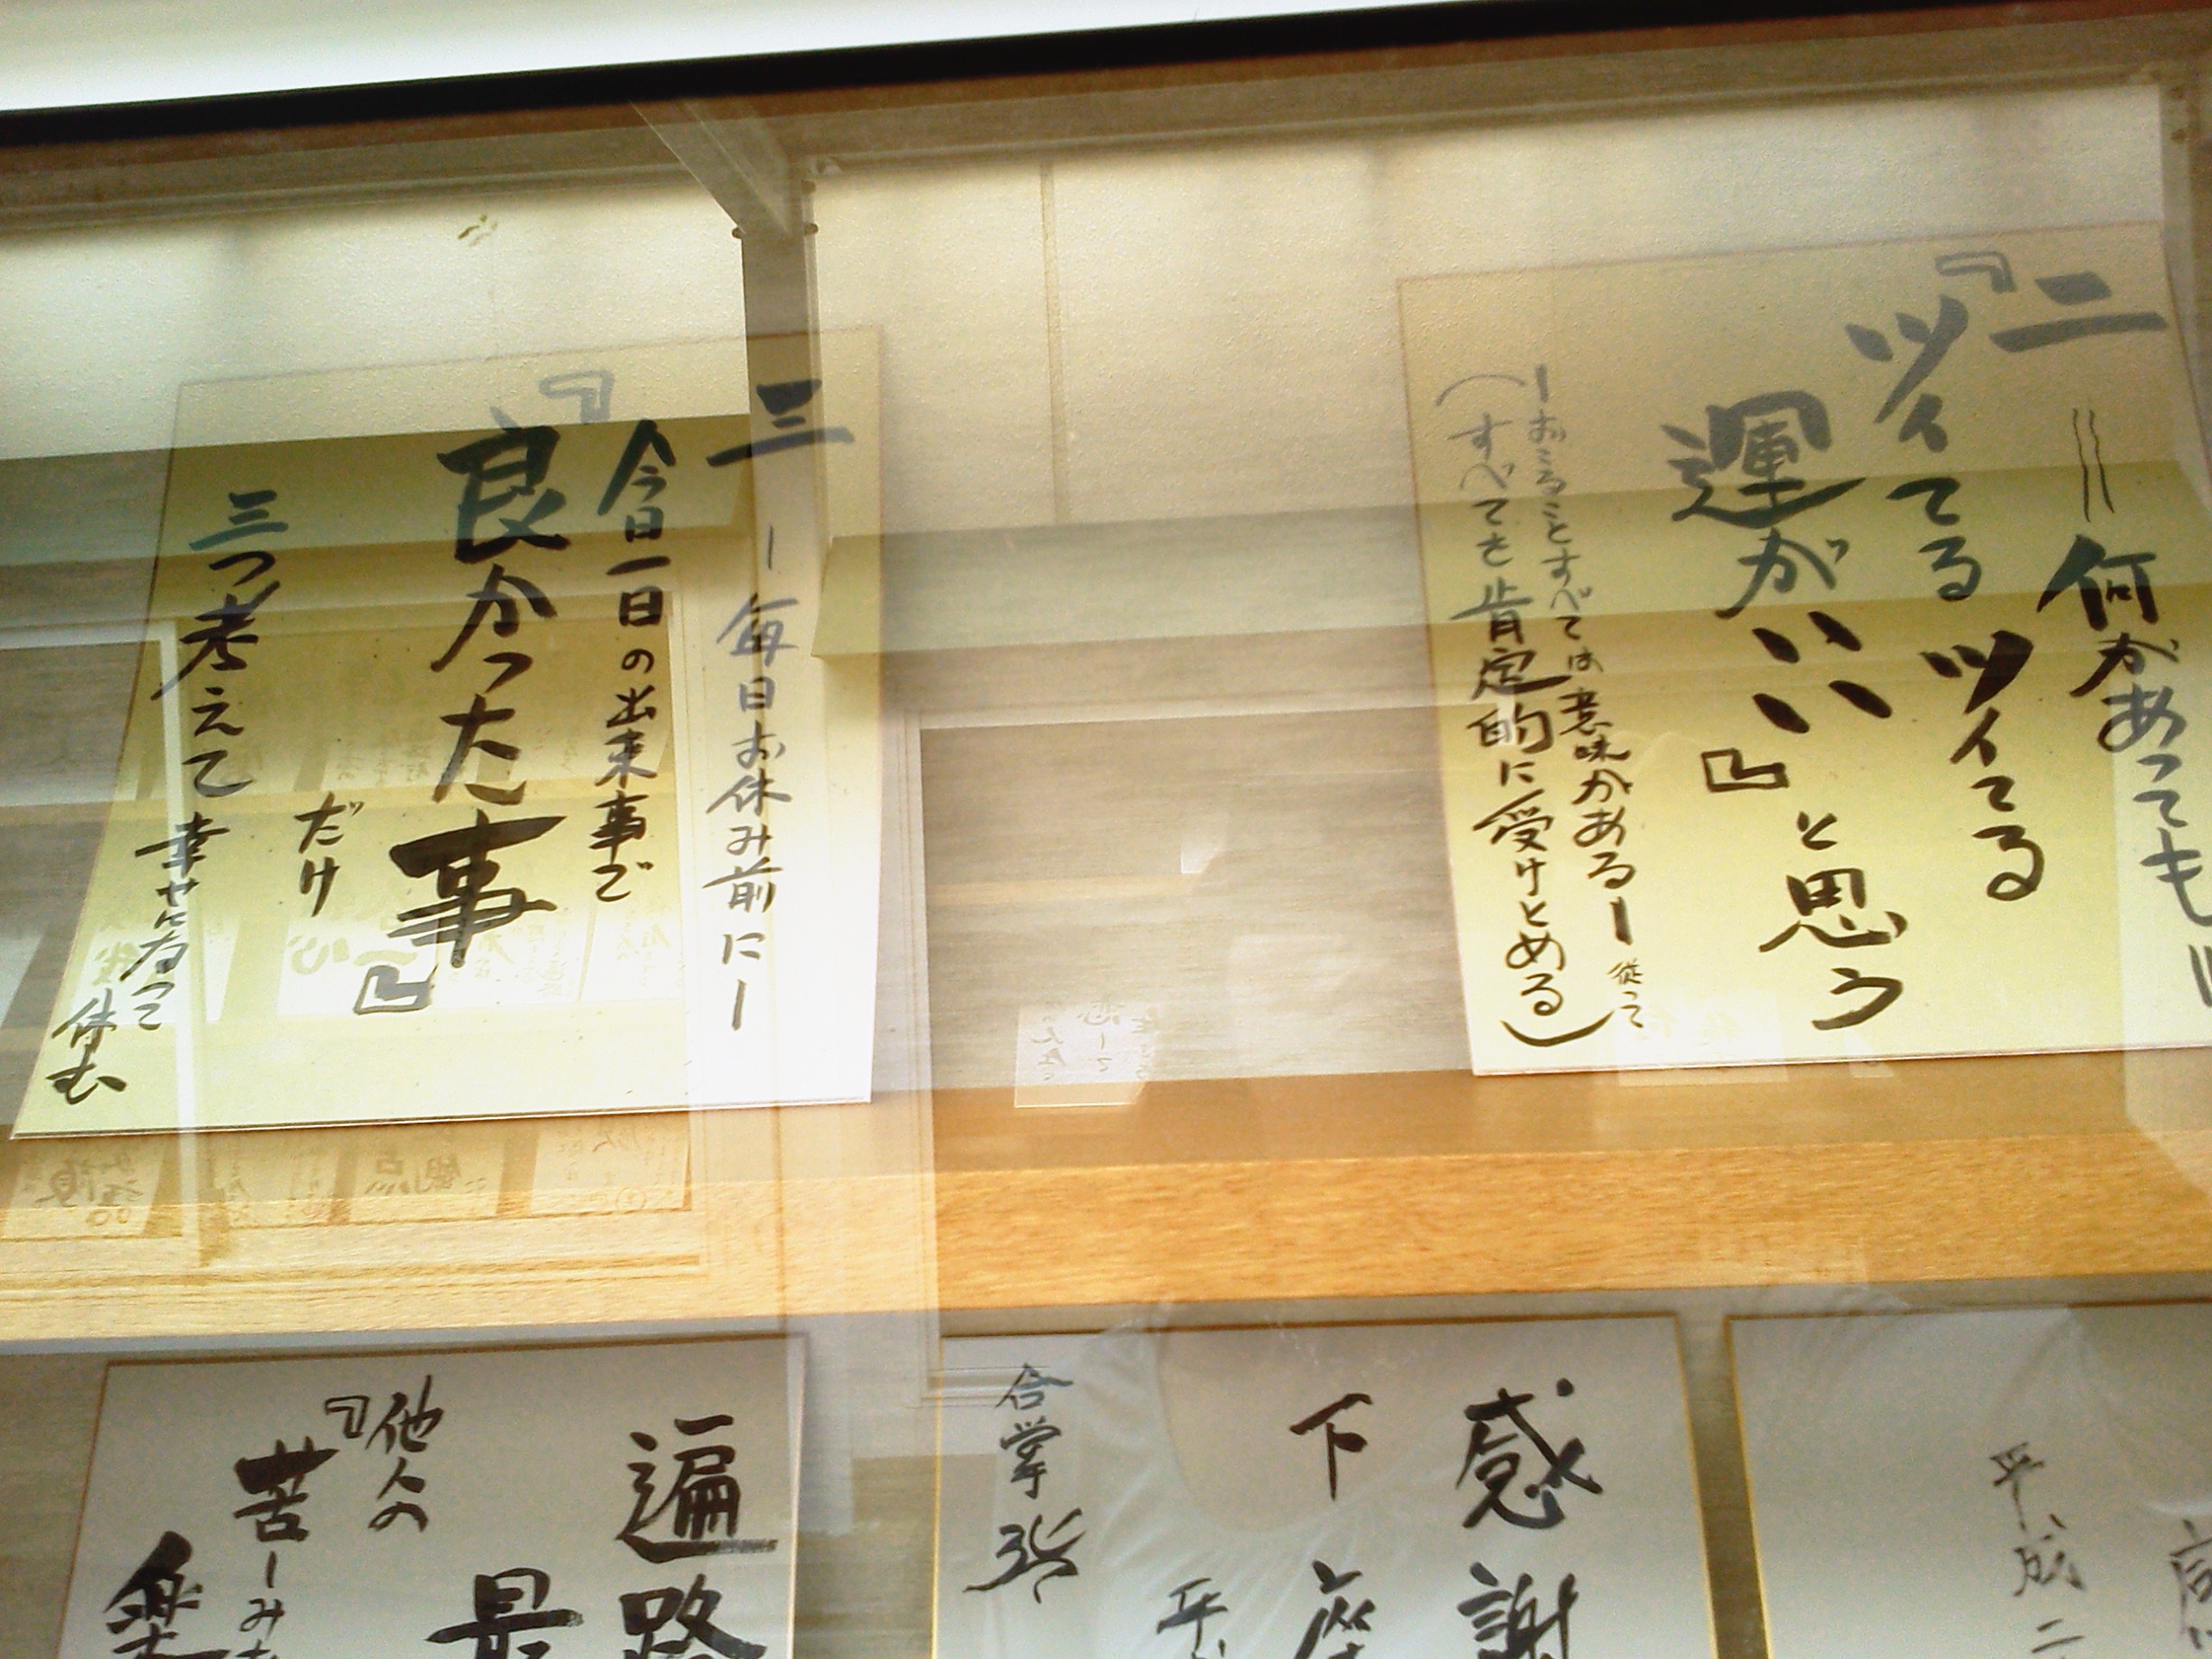 二
〃何があっても〃
『ツイてるツイてる
運がいい』と思う
ーおこることすべては意味があるー従って
(すべてを肯定的に受けとめる)
三
ー毎日お休み前にー
今日一日の出来事で
『良かった事』
だけ
三つ考えて幸せになって
休む
平成二
感謝
下座
平
合掌
遍路
最
他人の
『苦しみ